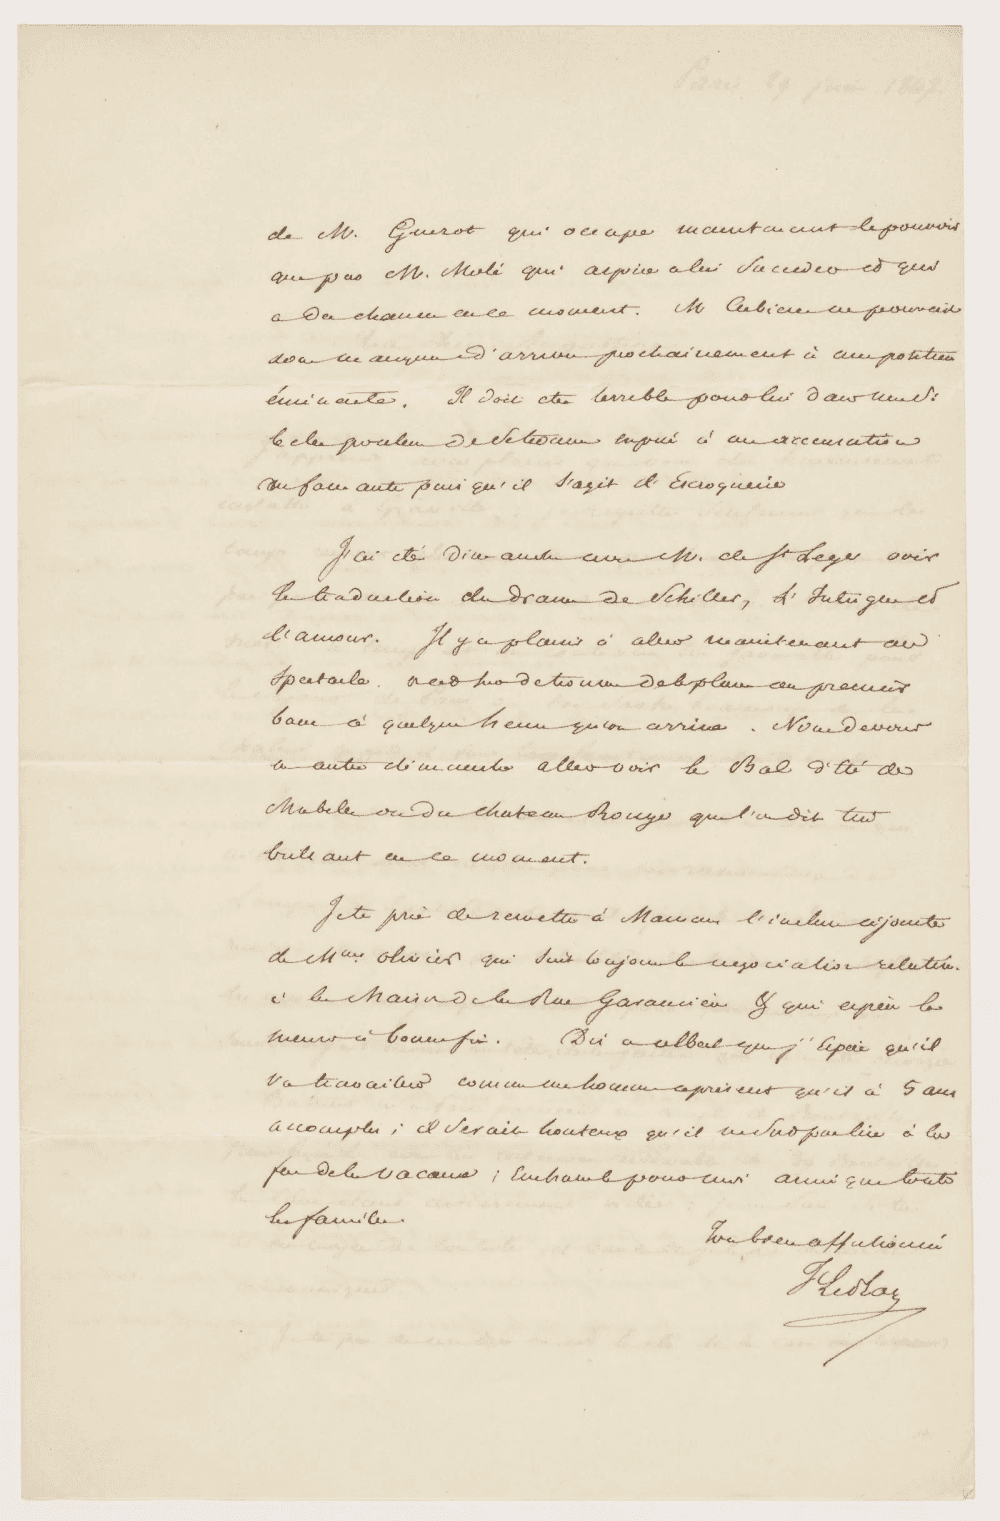 Paris 29 juin 1847.
de M. Guizot qui occupe maintenant le pouvoir
que par M. Molé qui aspire a lui succeder et qui
a des chances en ce moment. M Cubiere ne pouvait
donc manquer d'arriver prochainement à une position
éminente. Il doit etre terrible pour lui d'avoir
à une accusation
infamante puis qu'il s'agit d'Escroquerie
J'ai été Dimanche avec M. de St Leger voir
la traduction du drame de Schiller, L'Intrigue et
l'amour. Il y a plaisir à aller maintenant au
spectacle. on est sur de trouver de la place au premier
banc à quelque heure qu'on arrive. Nous devons
un autre dimanche aller voir le Bal d'Eté de
Mabile ou du Chateau Rouge que l'on dit très
brillant en ce moment.
Je te prie de remettre à Maman l'incluse ci jointe
de Mme Olivier qui suit toujours la negociation relative
à la Maison de la Rue Garancière & qui espère la
mener à bonne fin. Dis a Albert que j'espère qu'il
va travailler comme un homme apresent qu'il à 5 ans
accomplis; il serait honteux qu'il ne sut pas lire à la
fin de la vacance; Embrasse le pour moi ainsi que toute
la famille.
Ton bien affectionné
F LePlay